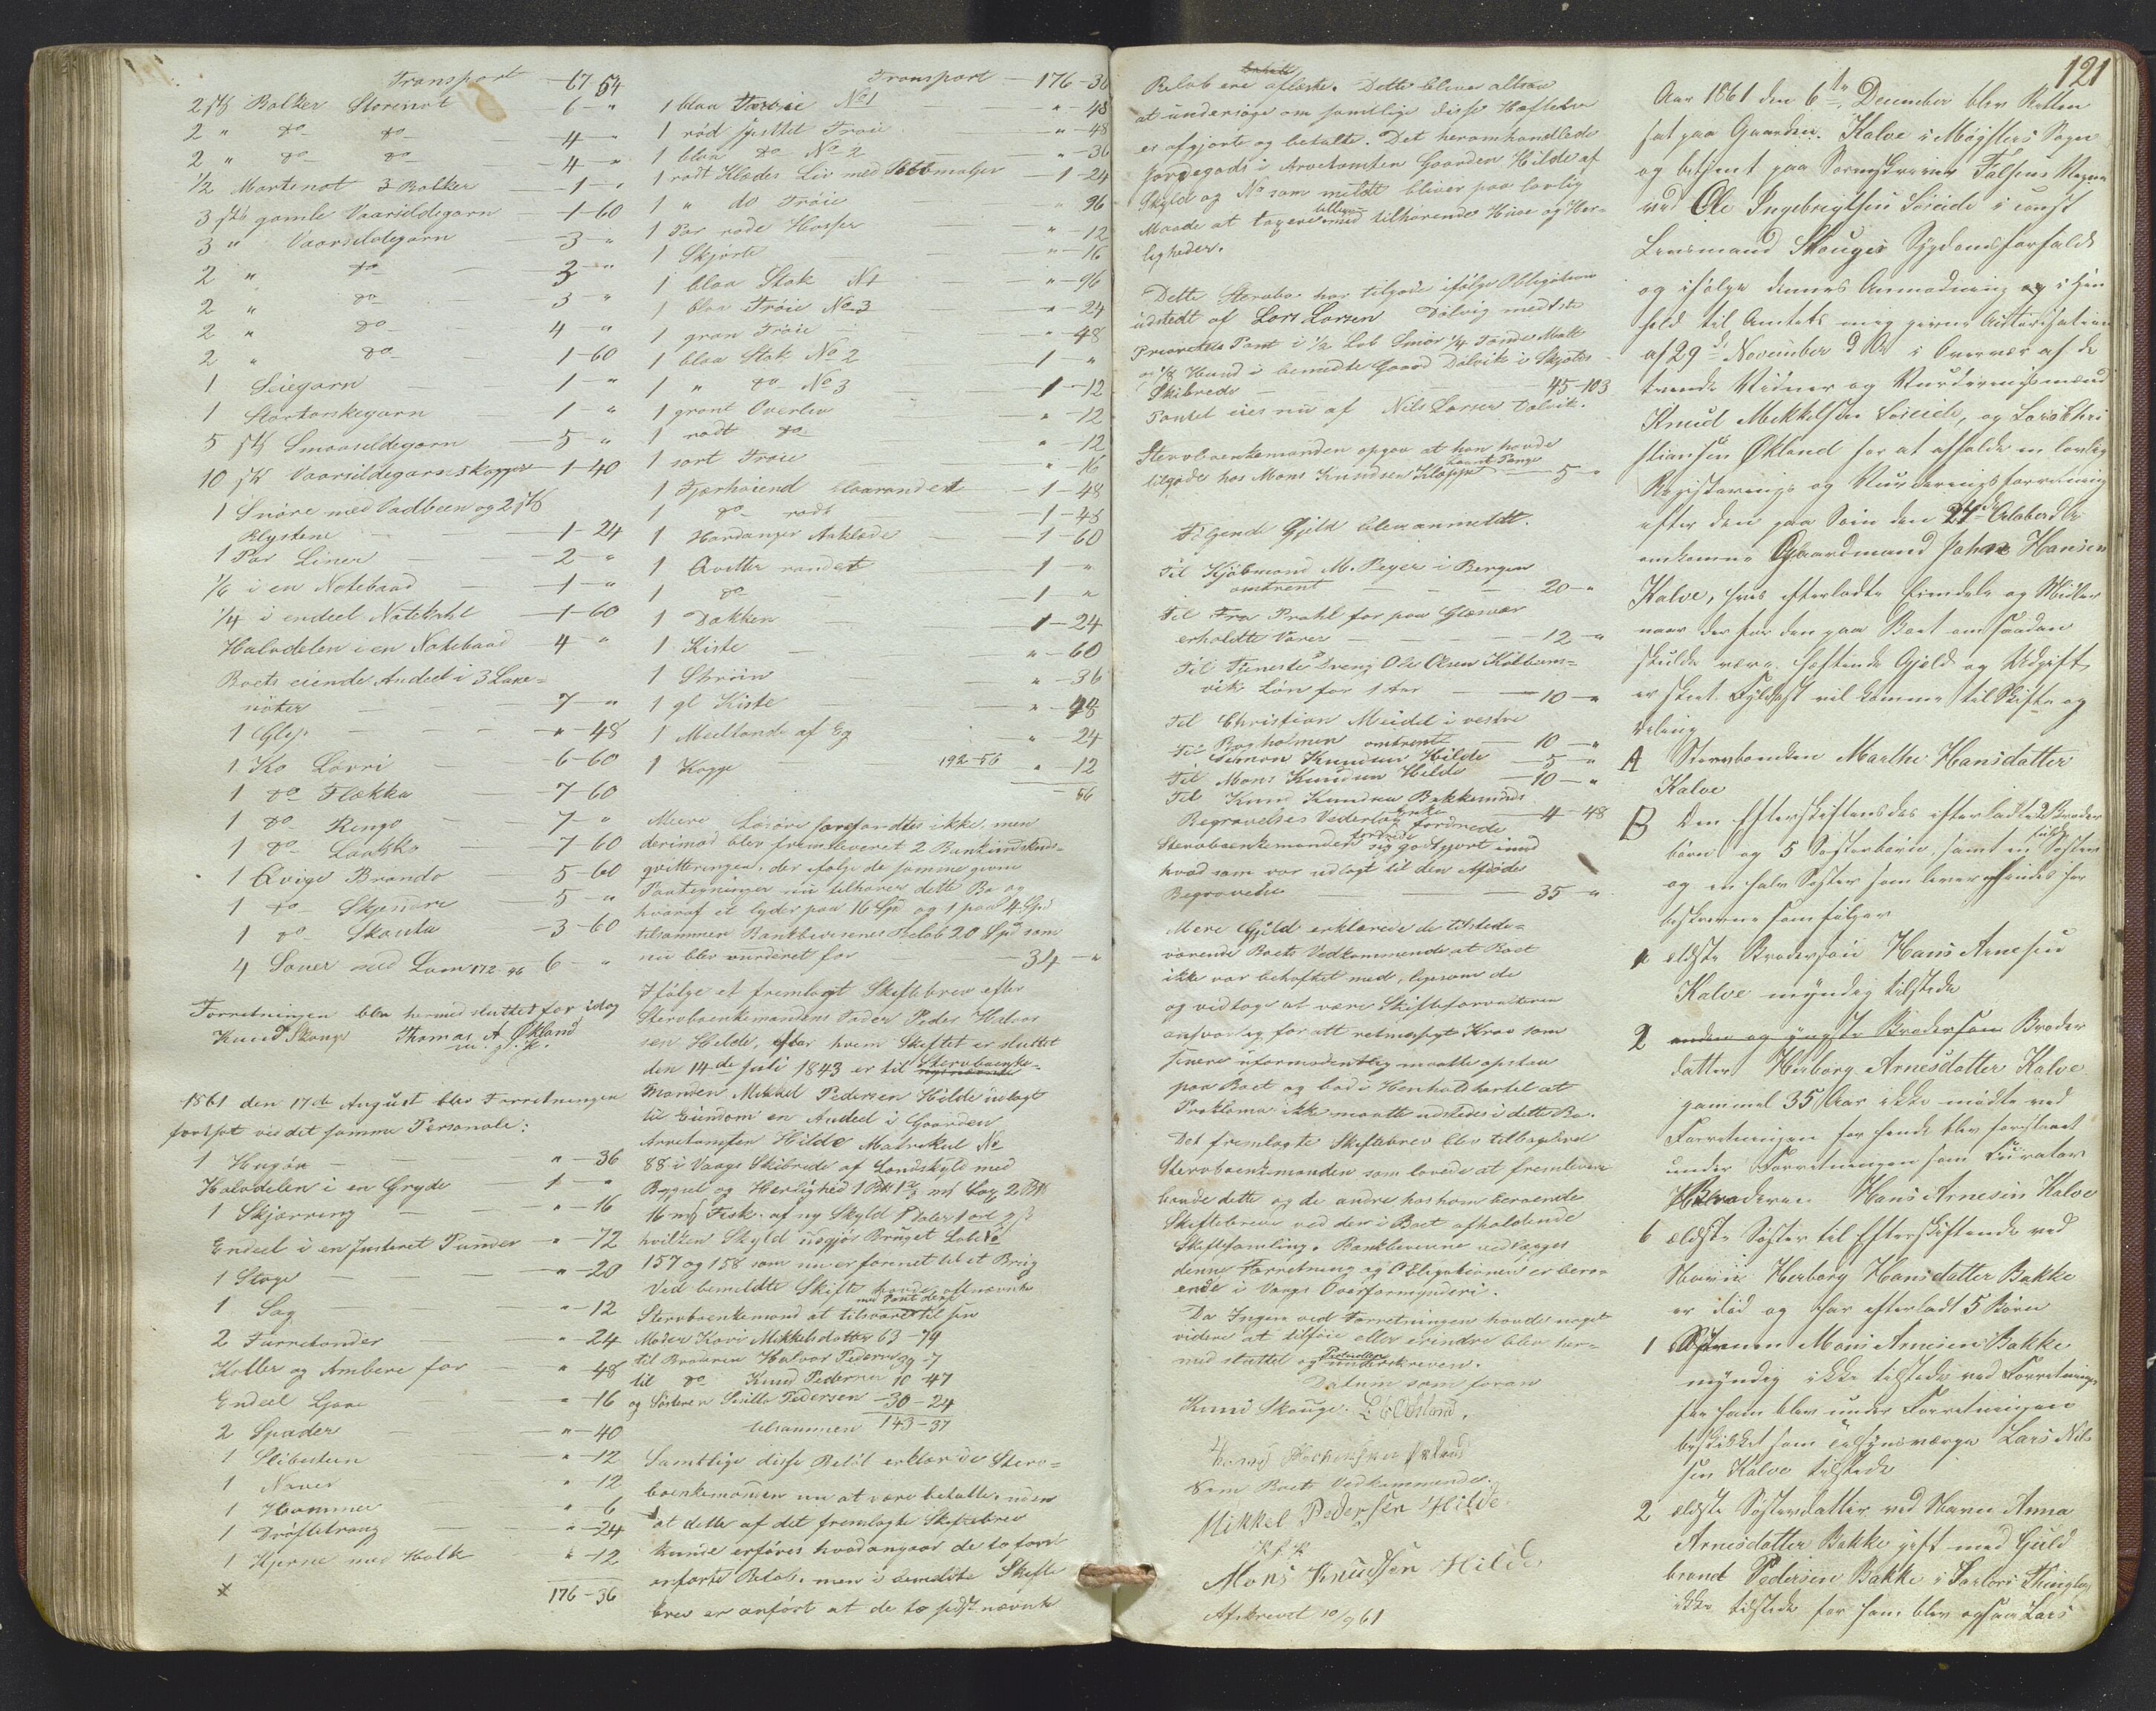 Transport 67 64
2 stk Bolker Storenot 6 - "
2 " do do 4 - "
2 " do do 4 - "
1/2 Mortenot 3 Bolker 1 - "
3 stk gamle Vaarsildegarn 1 - 60
3 " Vaarsildegarn 3 - "
2 " do 3 - "
2 " do 3 - "
2 " do 4 - "
2 " do 1 - 60
1 Seiegarn 1 - "
1 Stortorskegarn 1 - "
5 stk Smaasildegarn 5 - "
10 stk Vaarsildegarnskagger 1 - 40
1 Snøre med Vadbeen og 2 stk
Klystene 1 - 24
1 Par Liner 2 - "
1/6 i en Notebaad 1 - "
1/4 i endeel 1 - 60
Halvdelen i en Notebaad 4 - "
Boets eiende Andeel i 3 Laxe=
nøter 7 - "
1 Glip " - 48
1 Ko Lovri 6 - 60
1 do Flokka 7 - 60
1 do Ringo 7 - "
1 do 7 - 60
1 Qvige Brando 5 - 60
1 do 5 - "
1 do Skauta 3 - 60
4 Souer med Lam 172 96 6 - "
Forretningen blev hermed sluttet for idag
Knud Skouge Thomas A. Økland
m. f. P.
1861 den 17de August blev Forretningen
fortsat ved det samme Personale:
1 " - 36
Halvdelen i en Gryde 1 - "
1 Skjærreng " - 16
Endeel i en Justeret Punder " - 72
1 Stoge " - 20
1 Sag " - 12
2 " - 24
Koller og Ambere for " - 48
Endeel Ljaae " - 16
2 Spader " - 40
1 Slibesteen " - 12
1 Naver " - 12
1 Hammer " - 6
1 Drøftetroug " - 24
1 Kjerne med Holk " - 12
176 - 36
Transport 176 - 36
1 blaa Trøie No 1 " - 48
1 rød Trøie " - 48
1 blaa do No 2 " - 36
1 rødt Klædes Liv med 1 - 24
1 " do Trøie " 96
1 Par røde Hoser " - 12
1 Skjorte " - 16
1 blaa Stak No 1 " - 96
1 blaa Trøie No 3 " - 24
1 grøn Trøie " - 48
1 blaa Stak No 2 1 - "
1 " do No 3 1 - 12
1 grønt Overliv " - 12
1 rødt do " - 12
1 sort Trøie " - 16
1 Fjærhøiend blaarandet 1 - 48
1 do rødt 1 - 48
1 Hardanger Aaklæde 1 - 60
1 Qvitter randet 1 - "
1 do 1 - "
1 Dækken 1 - 24
1 Kiste " - 60
1 Skriin " - 36
1 gl Kiste " - 48
1 Meeltønde af Eg " - 24
1 Kagge 192-56 " - 12
56
Meere Løsøre forefandtes ikke, men
derimod blev fremleveret 2 Bankindskuds-
qvitteringer, der ifølge de samme givne
Paategninger nu tilhører dette Bo og
hvoraf et lyder paa 16 Spd og 1 paa 4 Spd
tilsammen Bankbevisenes Beløb 20 Spd som
nu blev vurderet for 34 - "
Ifølge et fremlagt Skiftebrev efter
Stervboenkemandens Fader Peder Halvor
sen Hilde, efter hvem Skiftet er sluttet
den 14de Juli 1843 er til Stervboenke-
manden Mikkel Pedersen Hilde udlagt
til Eiendom en Andeel i Gaarden
Arvetomten Hilde Matrikul No
88 i Vaags Skibrede af Landskyld med
Bygsel og Herlighed
16 mk Fisk. af ny Skyld 1 Daler 1 ort 9 s
hvilken Skyld udgjør Bruget Løbe No
157 og 158 som nu er forenet til et Brug
Ved bemeldte Skifte havde oftnævnte
med Pant deri
Stervboenkemand at tilsvare til sin
Moder Kari Mikkelsdatter 63 - 79
til Broderen Halvor Pedersen 39 - 7
til do Knud Pedersen 10 - 47
og Søsteren Pedersen 30 - 24
tilsammen 143 - 37
Samtlige disse Beløb erklærede Sterv-
boenkemanden nu at være betalte, uden
at dette af det fremlagte Skiftebrev
kunde erfares hvad angaar de to først
anførte Beløb, men i bemeldte Skifte
brev er anført at de to sidst nævnte
Beløb ere aflæste. Dette bliver altsaa
at undersøge om samtlige disse Heftelser
er afgjorte og betalte. Det heromhandlede
Jordegods i Arvetomten Gaarden Hilde af
Skyld og No som meldt bliver paa lovlig
Maade at taxere med tilhørende Huse og Her-
ligheder.
Dette Stervbo har tilgode ifølge Obligation
udstedt af Lars Larsen Dalvig med 1ste
Prioritets Pant i 1/2 Løb Smør 1/4 Tønde Malt
og 1/8 Hud i bemeldte Gaard Dalvik i
Skibrede 45 - 103
Pantet eies nu af Nils Larsen Dalvik.
Stervboenkemanden opgav at han havde
tilgode hos Mons Knudsen Kleppe laant Penge 5 - "
Følgende Gjeld blev anmeldt.
Til Kjøbmand M. Beyer i Bergen
omtrent 20 - "
Til Fra Prahl for paa Glesvær
erholdte Varer 12 - "
Til Tjeneste Dreng Ole Olsen
vik Løn for 1 Aar 10 - "
Til Christian Meidel i vestre
Bogholmen omtrent 10 - "
Til Simon Knudsen Hilde 5 - "
Til Mons Knudsen Hilde 10 - "
Til Knud Knudsen
Begravelses Vederlag 4 - 48
Stervboenkemanden fordrede sig godtgjort imod
hvad som var udlagt til den Afdødes
Begravelse 35 - "
Mere Gjeld erklærede de tilstede-
værende Boets Vedkommende at Boet
ikke var beheftet med, ligesom de
og vedtoge at være Skifteforvalteren
ansvarlig for alt retmæssigt Krav som
senere uformodentlig maatte opstaa
paa Boet og bad i Henhold hertil at
Proklama ikke maatte udstedes i dette Bo.
Det fremlagte Skiftebrev blev tilbageleveret
Stervboenkemanden som lovede at fremlevere
baade dette og de andre hos ham beroende
Skiftebreve ved den i Boet afholdende
Skiftesamling. Bankbeviserne vedlægges
denne Forretning og Obligationen er bero-
ende i Vaags Overformynderi.
Da Ingen ved Forretningen havde noget
videre at tilføie eller erindre blev her-
med sluttet og underskreven.
Datum som foran
Knud Skouge.
Som Boets Vedkommende.
Mikkel Pedersen Hilde
Mons Knudsen Hilde
Afskrevet 10/9 61
121
Aar 1861 den 6te December blev Retten
sat paa Gaarden Kalve i Møgsters Sogn
og betjent paa Sorenskriver Falsens Vegne
ved Ole Ingebrigtsen Søeide i const
Lensmand Skouges Sygdomsforfald
og ifølge dennes Anmodning og i Hen
hold til Amtets mig givne Autorisation
af 29de November d A i Overvær af de
tvende Vidner og Vurderingsmænd
Knud Mikkelsen Søeide, og Lars Chri
stiansen Økland for at afholde en lovlig
Registerings og Vurderingsforretning
efter den paa Søen den 24de October d A
omkomne Gaardmand Johan Hansen
Kalve, hvis efterladte Eiendele og Midler
naar der før den paa Boet
skulde være heftende Gjeld og Udgift
er skeet Fyldest vil komme til Skifte og
Deling
A Stervboenken Marthe Hansdatter
Kalve
B Den Efterskiftendes efterladte 2 Broder
børn og 5 Søsterbørn, samt en Søster
og en halv Søster som
beskrevne som følger
a ældste Brodersøn Hans Arnesen
Kalve myndig tilstede
2 anden og yngste Brodersøn Broder
datter Herborg Arnesdatter Kalve
gammel 35 Aar ikke mødte ved
Forretningen for hende blev
under Forretningen som Curator
Broderen Hans Arnesen Kalve
b ældste Søster til Efterskiftende ved
Navn Herborg Hansdatter Bakke
er død og har efterladt 5 Børn
1 Sønnen Mons Arnesen Bakke
myndig ikke tilstede ved Forretningen
for ham blev under Forretningen
beskikket som tilsynsværge Lars Nil
sen Kalve tilstede
2 ældste Søsterdatter ved Navn Anna
Arnesdatter Bakke gift med Guld
brand Pedersen Bakke i Sartors Thinglag
ikke tilstede for ham blev ogsaa Lars